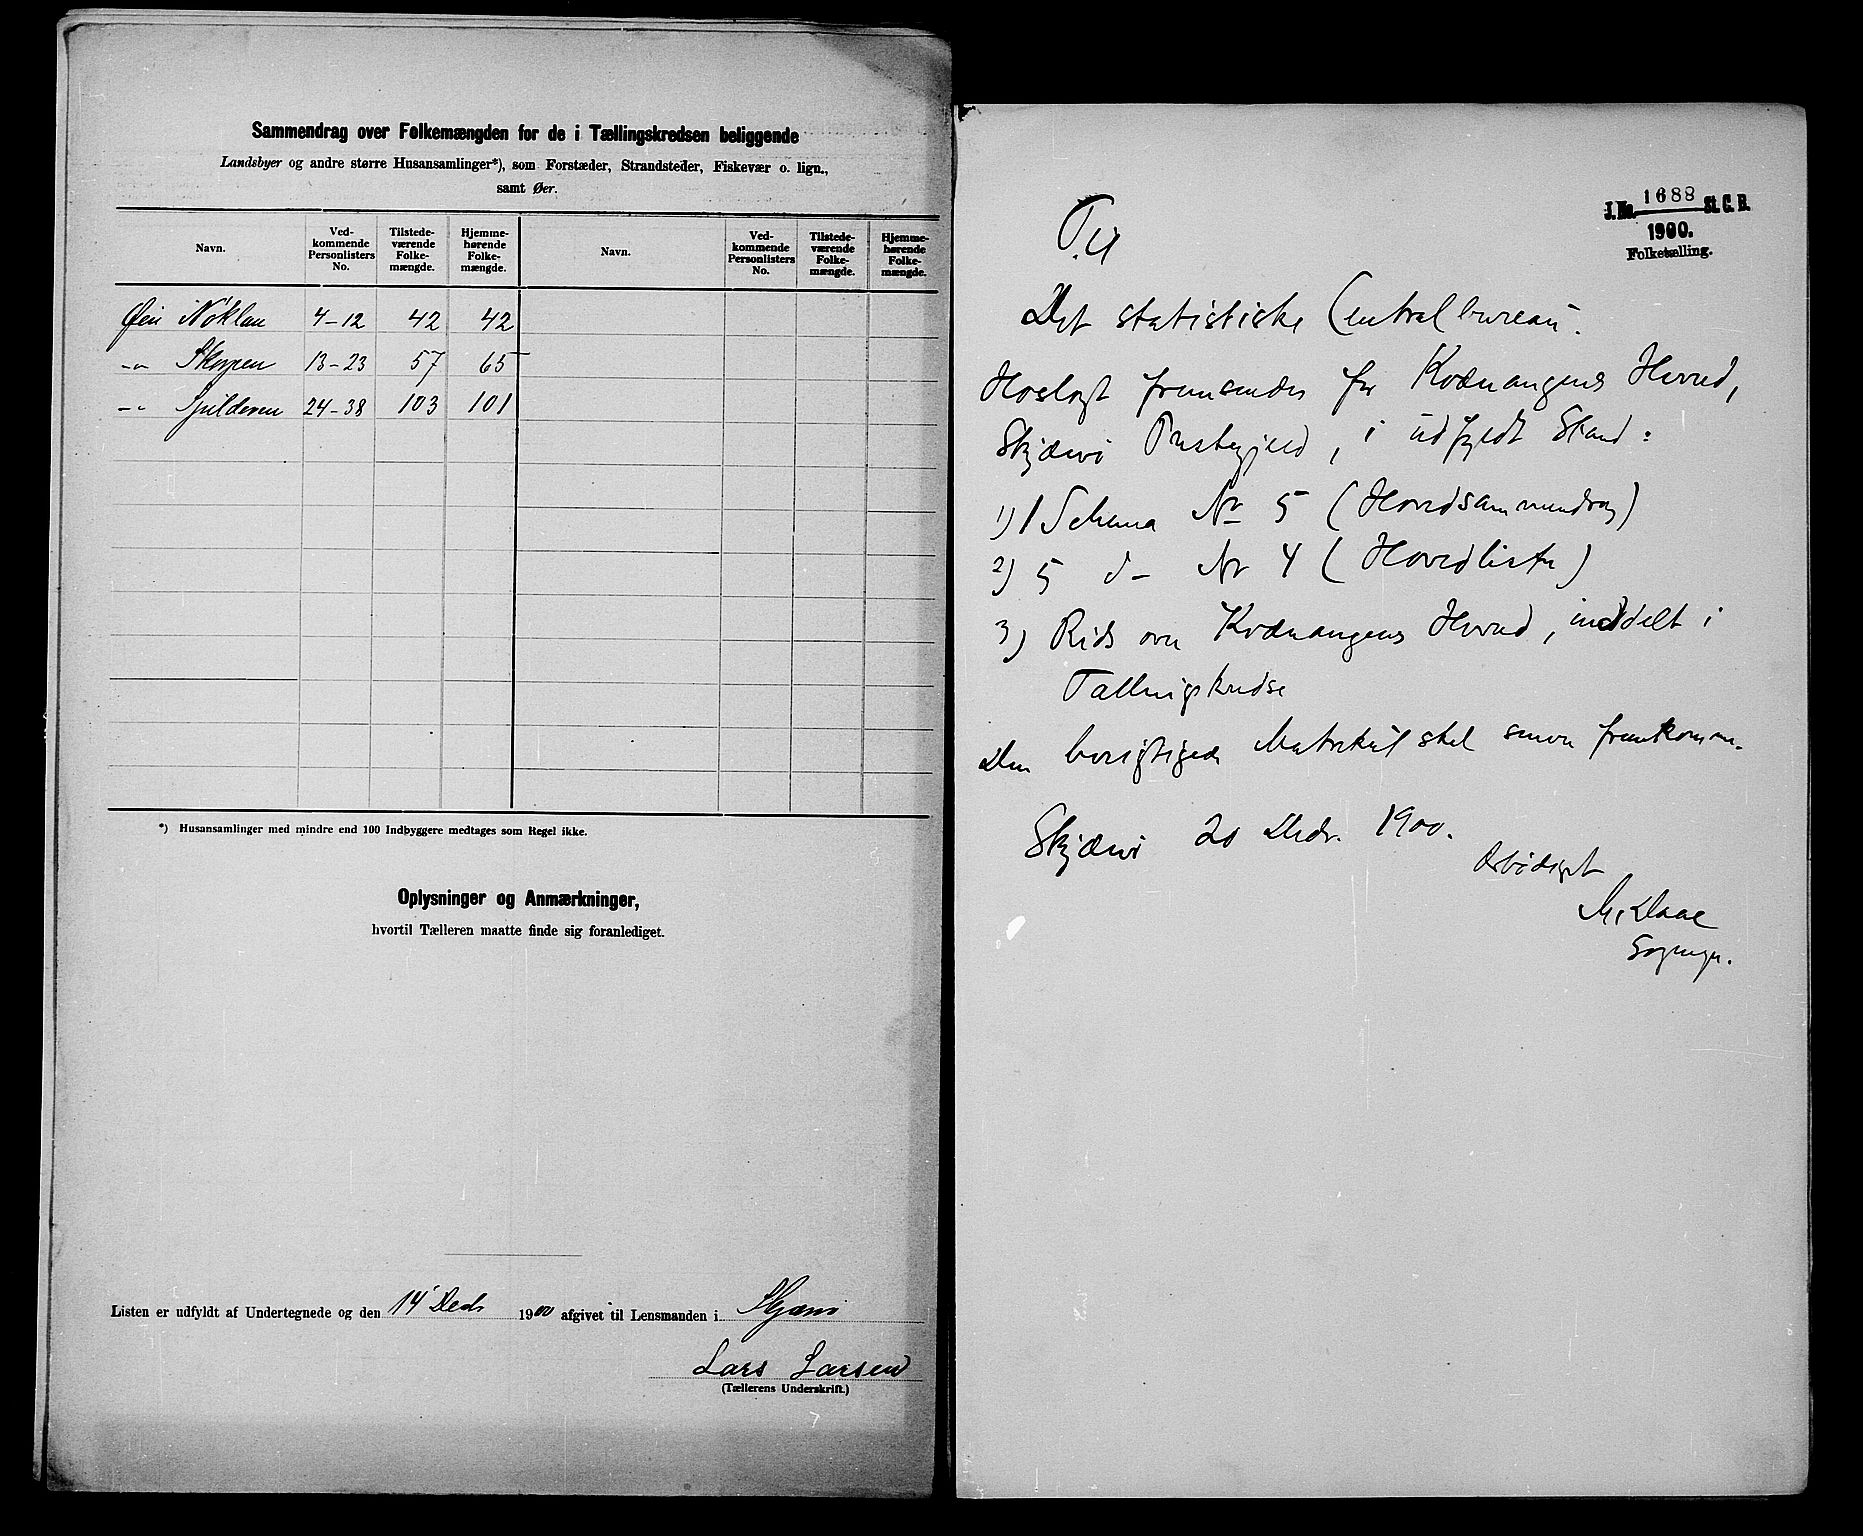 Sammendrag over Folkemængden for de i Tællingskredsen beliggende
Landsbyer og andre større Husansamlinger*), som Forstæder, Strandsteder, Fiskevær o. lign.,
samt Øer.
Navn. Ved-kommende Personlisters No. Tilstede-værende Folke-mængde. Hjemme-hørende Folke-mængde. Navn. Ved-kommende Personlisters No. Tilstede-værende Folke-mængde. Hjemme-hørende Folke-mængde.
Øen Nöklan 4-12 42 42
-"- Skorpen 13-23 57 65
-"- Spilderen 24-38 103 101
*) Husansamlinger med mindre end 100 Indbyggere medtages som Regel ikke.
Oplysninger og Anmærkninger,
hvortil Tælleren maatte finde sig foranlediget.
Listen er udfyldt af Undertegnede og den 14 Decb 1900 afgivet til Lensmanden i Skjærvö
Lars Larsen
(Tællerens Underskrift.)
J. No. 1688 St. C. B.
1900.
Folketælling.
Til
Det statistiske Centralbureau.
Hoslagt fremsendes for Kvænangens Herred,
Skjærvö Prestegjeld, i udfyldt Stand:
1) 1 Schema No 5 (Hovedsammendrag)
2) 5 d- Nr 4 (Hovedlister)
3) Rids over Kvænangens Herred, inddelt i
Tællingskredse
Den berigtigede Matrikul skal senere fremkomme.
Skjærvö 20 Decbr. 1900.
Ærbödigst
M. Daae
Sogнepr.